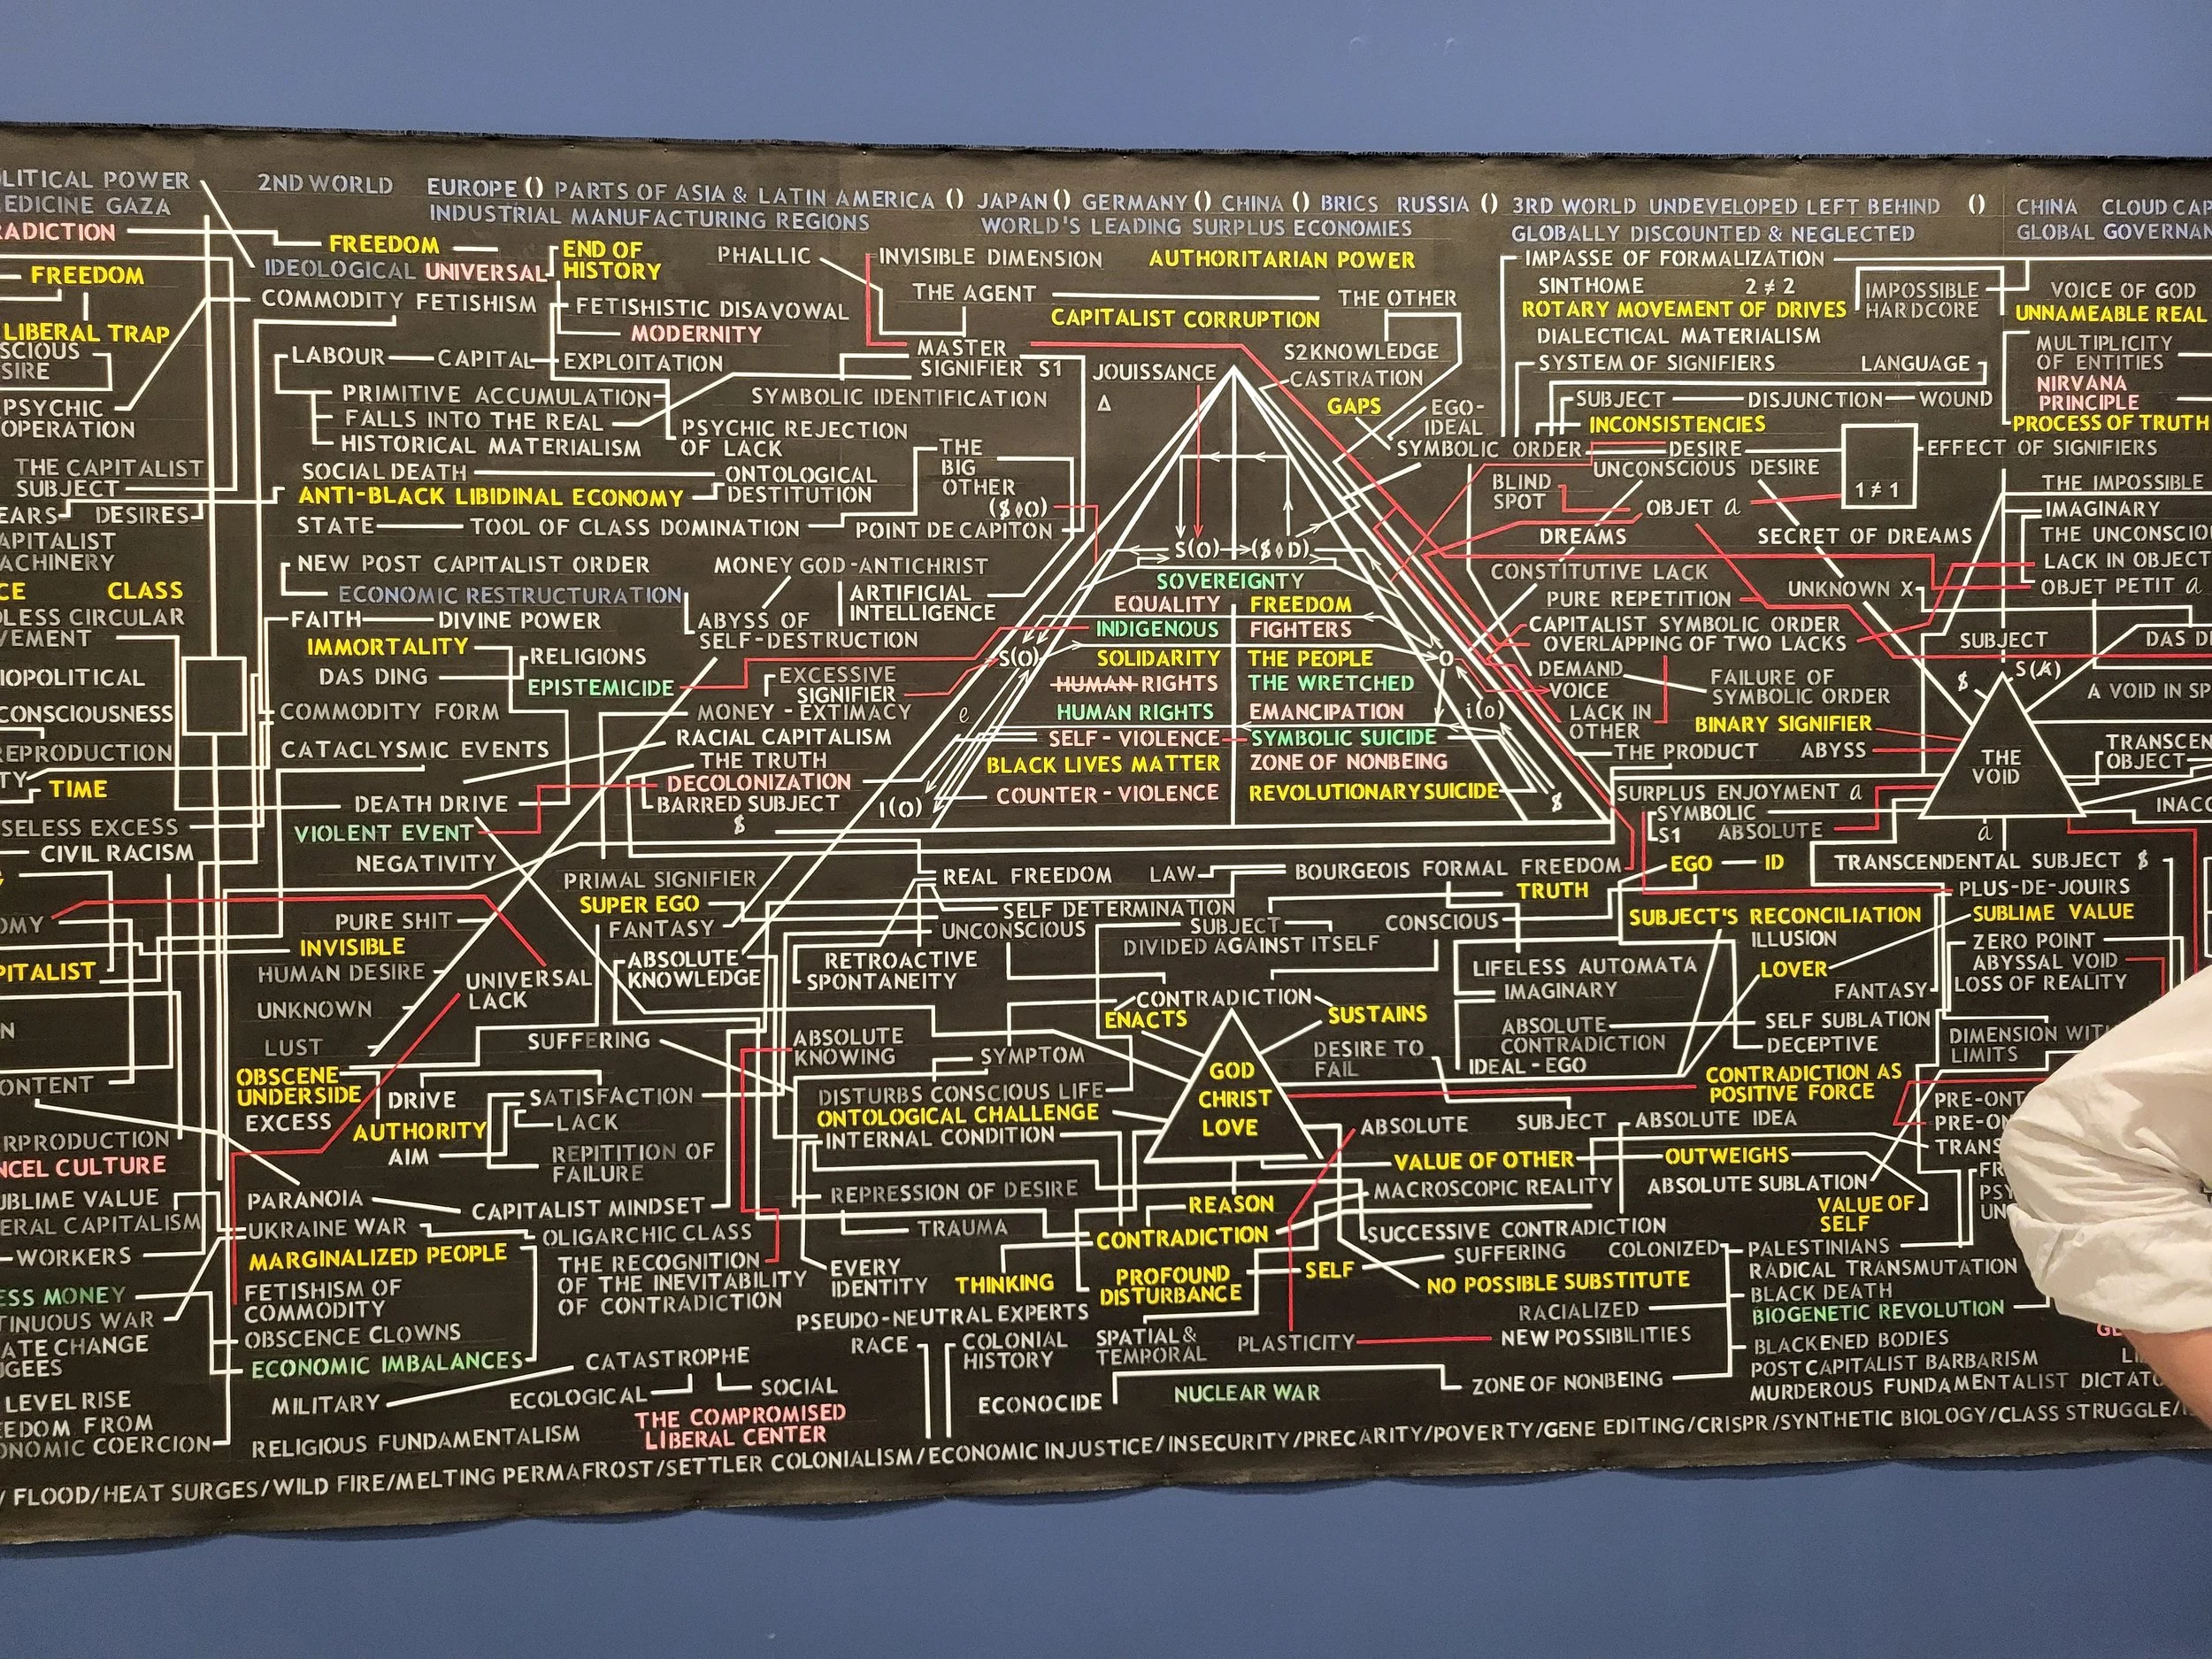 LITICAL POWER
EDICINE GAZA
RADICTION
FREEDOM
LIBERAL TRAP
SCIOUS
SIRE
PSYCHIC
OPERATION
THE CAPITALIST
SUBJECT
EARS DESIRES
APITALIST
ACHINERY
CE CLASS
DLESS CIRCULAR
VEMENT
IOPOLITICAL
CONSCIOUSNESS
REPRODUCTION
TY TIME
SELESS EXCESS
CIVIL RACISM
OMY
PITALIST
N
ONTENT
RPRODUCTION
NCEL CULTURE
UBLIME VALUE
ERAL CAPITALISM
WORKERS
ESS MONEY
TINUOUS WAR
ATE CHANGE
UGEES
LEVEL RISE
EDOM FROM
ONOMIC COERCION
2ND WORLD EUROPE () PARTS OF ASIA & LATIN AMERICA () JAPAN () GERMANY () CHINA () BRICS RUSSIA () 3RD WORLD UNDEVELOPED LEFT BEHIND () CHINA CLOUD CAP
INDUSTRIAL MANUFACTURING REGIONS WORLD'S LEADING SURPLUS ECONOMIES GLOBALLY DISCOUNTED & NEGLECTED GLOBAL GOVERNAN
FREEDOM
IDEOLOGICAL UNIVERSAL
END OF
HISTORY
COMMODITY FETISHISM
FETISHISTIC DISAVOWAL
MODERNITY
LABOUR CAPITAL EXPLOITATION
PRIMITIVE ACCUMULATION
FALLS INTO THE REAL
HISTORICAL MATERIALISM
PSYCHIC REJECTION
OF LACK
SOCIAL DEATH
ONTOLOGICAL
DESTITUTION
ANTI-BLACK LIBIDINAL ECONOMY
STATE TOOL OF CLASS DOMINATION
NEW POST CAPITALIST ORDER
ECONOMIC RESTRUCTURATION
FAITH DIVINE POWER
IMMORTALITY
DAS DING
RELIGIONS
EPISTEMICIDE
COMMODITY FORM
CATACLYSMIC EVENTS
DEATH DRIVE
VIOLENT EVENT
NEGATIVITY
PHALLIC
INVISIBLE DIMENSION
AUTHORITARIAN POWER
THE AGENT
THE OTHER
CAPITALIST CORRUPTION
MASTER
SIGNIFIER S1
S2 KNOWLEDGE
CASTRATION
JOUISSANCE
Δ
GAPS
EGO-
IDEAL
SYMBOLIC IDENTIFICATION
THE
BIG
OTHER
($◊O)
POINT DE CAPITON
MONEY GOD-ANTICHRIST
ARTIFICIAL
INTELLIGENCE
ABYSS OF
SELF-DESTRUCTION
EXCESSIVE
SIGNIFIER
MONEY - EXTIMACY
e
RACIAL CAPITALISM
THE TRUTH
DECOLONIZATION
BARRED SUBJECT
$
S(O) ($◊D)
SOVEREIGNTY
EQUALITY FREEDOM
INDIGENOUS FIGHTERS
S(O) SOLIDARITY THE PEOPLE O
HUMAN RIGHTS THE WRETCHED
HUMAN RIGHTS EMANCIPATION i(o)
SELF-VIOLENCE SYMBOLIC SUICIDE
BLACK LIVES MATTER ZONE OF NONBEING
COUNTER-VIOLENCE REVOLUTIONARY SUICIDE
I(O) $
IMPASSE OF FORMALIZATION
SINTHOME 2 ≠ 2
ROTARY MOVEMENT OF DRIVES
IMPOSSIBLE
HARDCORE
DIALECTICAL MATERIALISM
SYSTEM OF SIGNIFIERS LANGUAGE
SUBJECT DISJUNCTION WOUND
INCONSISTENCIES
SYMBOLIC ORDER DESIRE
EFFECT OF SIGNIFIERS
UNCONSCIOUS DESIRE
BLIND
SPOT
1 ≠ 1
OBJET a
DREAMS SECRET OF DREAMS
CONSTITUTIVE LACK
UNKNOWN X
PURE REPETITION
CAPITALIST SYMBOLIC ORDER
OVERLAPPING OF TWO LACKS
DEMAND
FAILURE OF
SYMBOLIC ORDER
VOICE
LACK IN
OTHER
BINARY SIGNIFIER
THE PRODUCT ABYSS
SURPLUS ENJOYMENT a
SYMBOLIC
S1 ABSOLUTE
VOICE OF GOD
UNNAMEABLE REAL
MULTIPLICITY
OF ENTITIES
NIRVANA
PRINCIPLE
PROCESS OF TRUTH
THE IMPOSSIBLE
IMAGINARY
THE UNCONSCIOU
LACK IN OBJECT
OBJET PETIT a
SUBJECT
DAS D
$ S(A)
A VOID IN SP
THE
VOID
a
TRANSCEN
OBJECT
INACC
PURE SHIT
INVISIBLE
HUMAN DESIRE
UNKNOWN
UNIVERSAL
LACK
LUST
OBSCENE
UNDERSIDE
EXCESS
DRIVE
AUTHORITY
AIM
SUFFERING
SATISFACTION
LACK
REPITITION OF
FAILURE
PARANOIA
CAPITALIST MINDSET
UKRAINE WAR
OLIGARCHIC CLASS
MARGINALIZED PEOPLE
THE RECOGNITION
OF THE INEVITABILITY
OF CONTRADICTION
FETISHISM OF
COMMODITY
OBSCENCE CLOWNS
ECONOMIC IMBALANCES
MILITARY
CATASTROPHE
ECOLOGICAL SOCIAL
THE COMPROMISED
LIBERAL CENTER
RELIGIOUS FUNDAMENTALISM
PRIMAL SIGNIFIER
SUPER EGO
FANTASY
ABSOLUTE
KNOWLEDGE
REAL FREEDOM LAW BOURGEOIS FORMAL FREEDOM
TRUTH
SELF DETERMINATION
UNCONSCIOUS
SUBJECT
DIVIDED AGAINST ITSELF
CONSCIOUS
RETROACTIVE
SPONTANEITY
CONTRADICTION
ENACTS SUSTAINS
ABSOLUTE
KNOWING
SYMPTOM
DISTURBS CONSCIOUS LIFE
ONTOLOGICAL CHALLENGE
INTERNAL CONDITION
GOD
CHRIST
LOVE
REPRESSION OF DESIRE
TRAUMA
REASON
CONTRADICTION
EVERY
IDENTITY
THINKING
PROFOUND
DISTURBANCE
SELF
PSEUDO-NEUTRAL EXPERTS
RACE
COLONIAL
HISTORY
SPATIAL &
TEMPORAL
PLASTICITY
NEW POSSIBILITIES
ECONOCIDE
NUCLEAR WAR
ZONE OF NONBEING
EGO ID
TRANSCENDENTAL SUBJECT $
PLUS-DE-JOUIRS
SUBJECT'S RECONCILIATION
SUBLIME VALUE
ILLUSION
ZERO POINT
LIFELESS AUTOMATA
IMAGINARY
LOVER
ABYSSAL VOID
FANTASY
LOSS OF REALITY
ABSOLUTE
CONTRADICTION
SELF SUBLATION
DECEPTIVE
DIMENSION WIT
LIMITS
DESIRE TO
FAIL
IDEAL-EGO
CONTRADICTION AS
POSITIVE FORCE
ABSOLUTE SUBJECT ABSOLUTE IDEA
PRE-ONT
PRE-ON
TRANS
VALUE OF OTHER OUTWEIGHS
MACROSCOPIC REALITY ABSOLUTE SUBLATION
VALUE OF
SELF
FR
PSY
UN
SUCCESSIVE CONTRADICTION
SUFFERING COLONIZED
NO POSSIBLE SUBSTITUTE
RACIALIZED
PALESTINIANS
RADICAL TRANSMUTATION
BLACK DEATH
BIOGENETIC REVOLUTION
BLACKENED BODIES
POST CAPITALIST BARBARISM
MURDEROUS FUNDAMENTALIST DICTATO
/ FLOOD/HEAT SURGES/WILD FIRE/MELTING PERMAFROST/SETTLER COLONIALISM/ECONOMIC INJUSTICE/INSECURITY/PRECARITY/POVERTY/GENE EDITING/CRISPR/SYNTHETIC BIOLOGY/CLASS STRUGGLE/